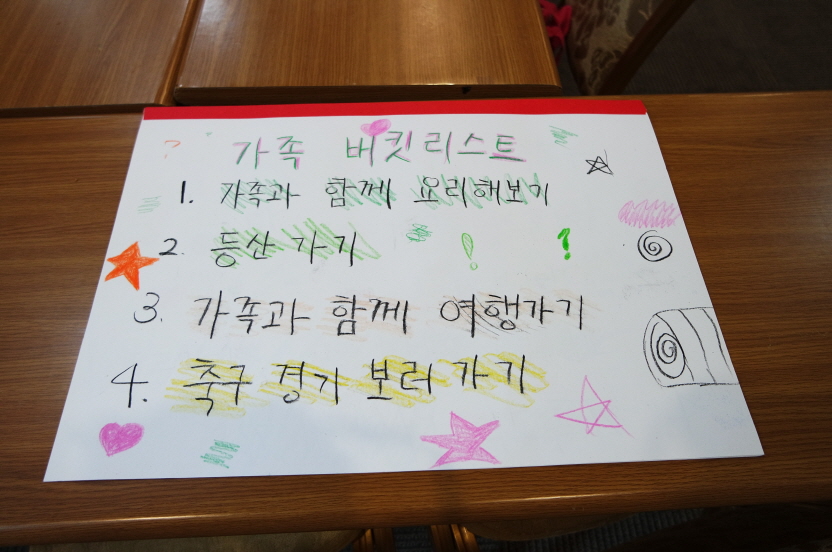 가족 버킷리스트
1. 가족과 함께 요리해보기
2. 등산 가기 ! ?
3. 가족과 함께 여행가기
4. 축구 경기 보러 가기